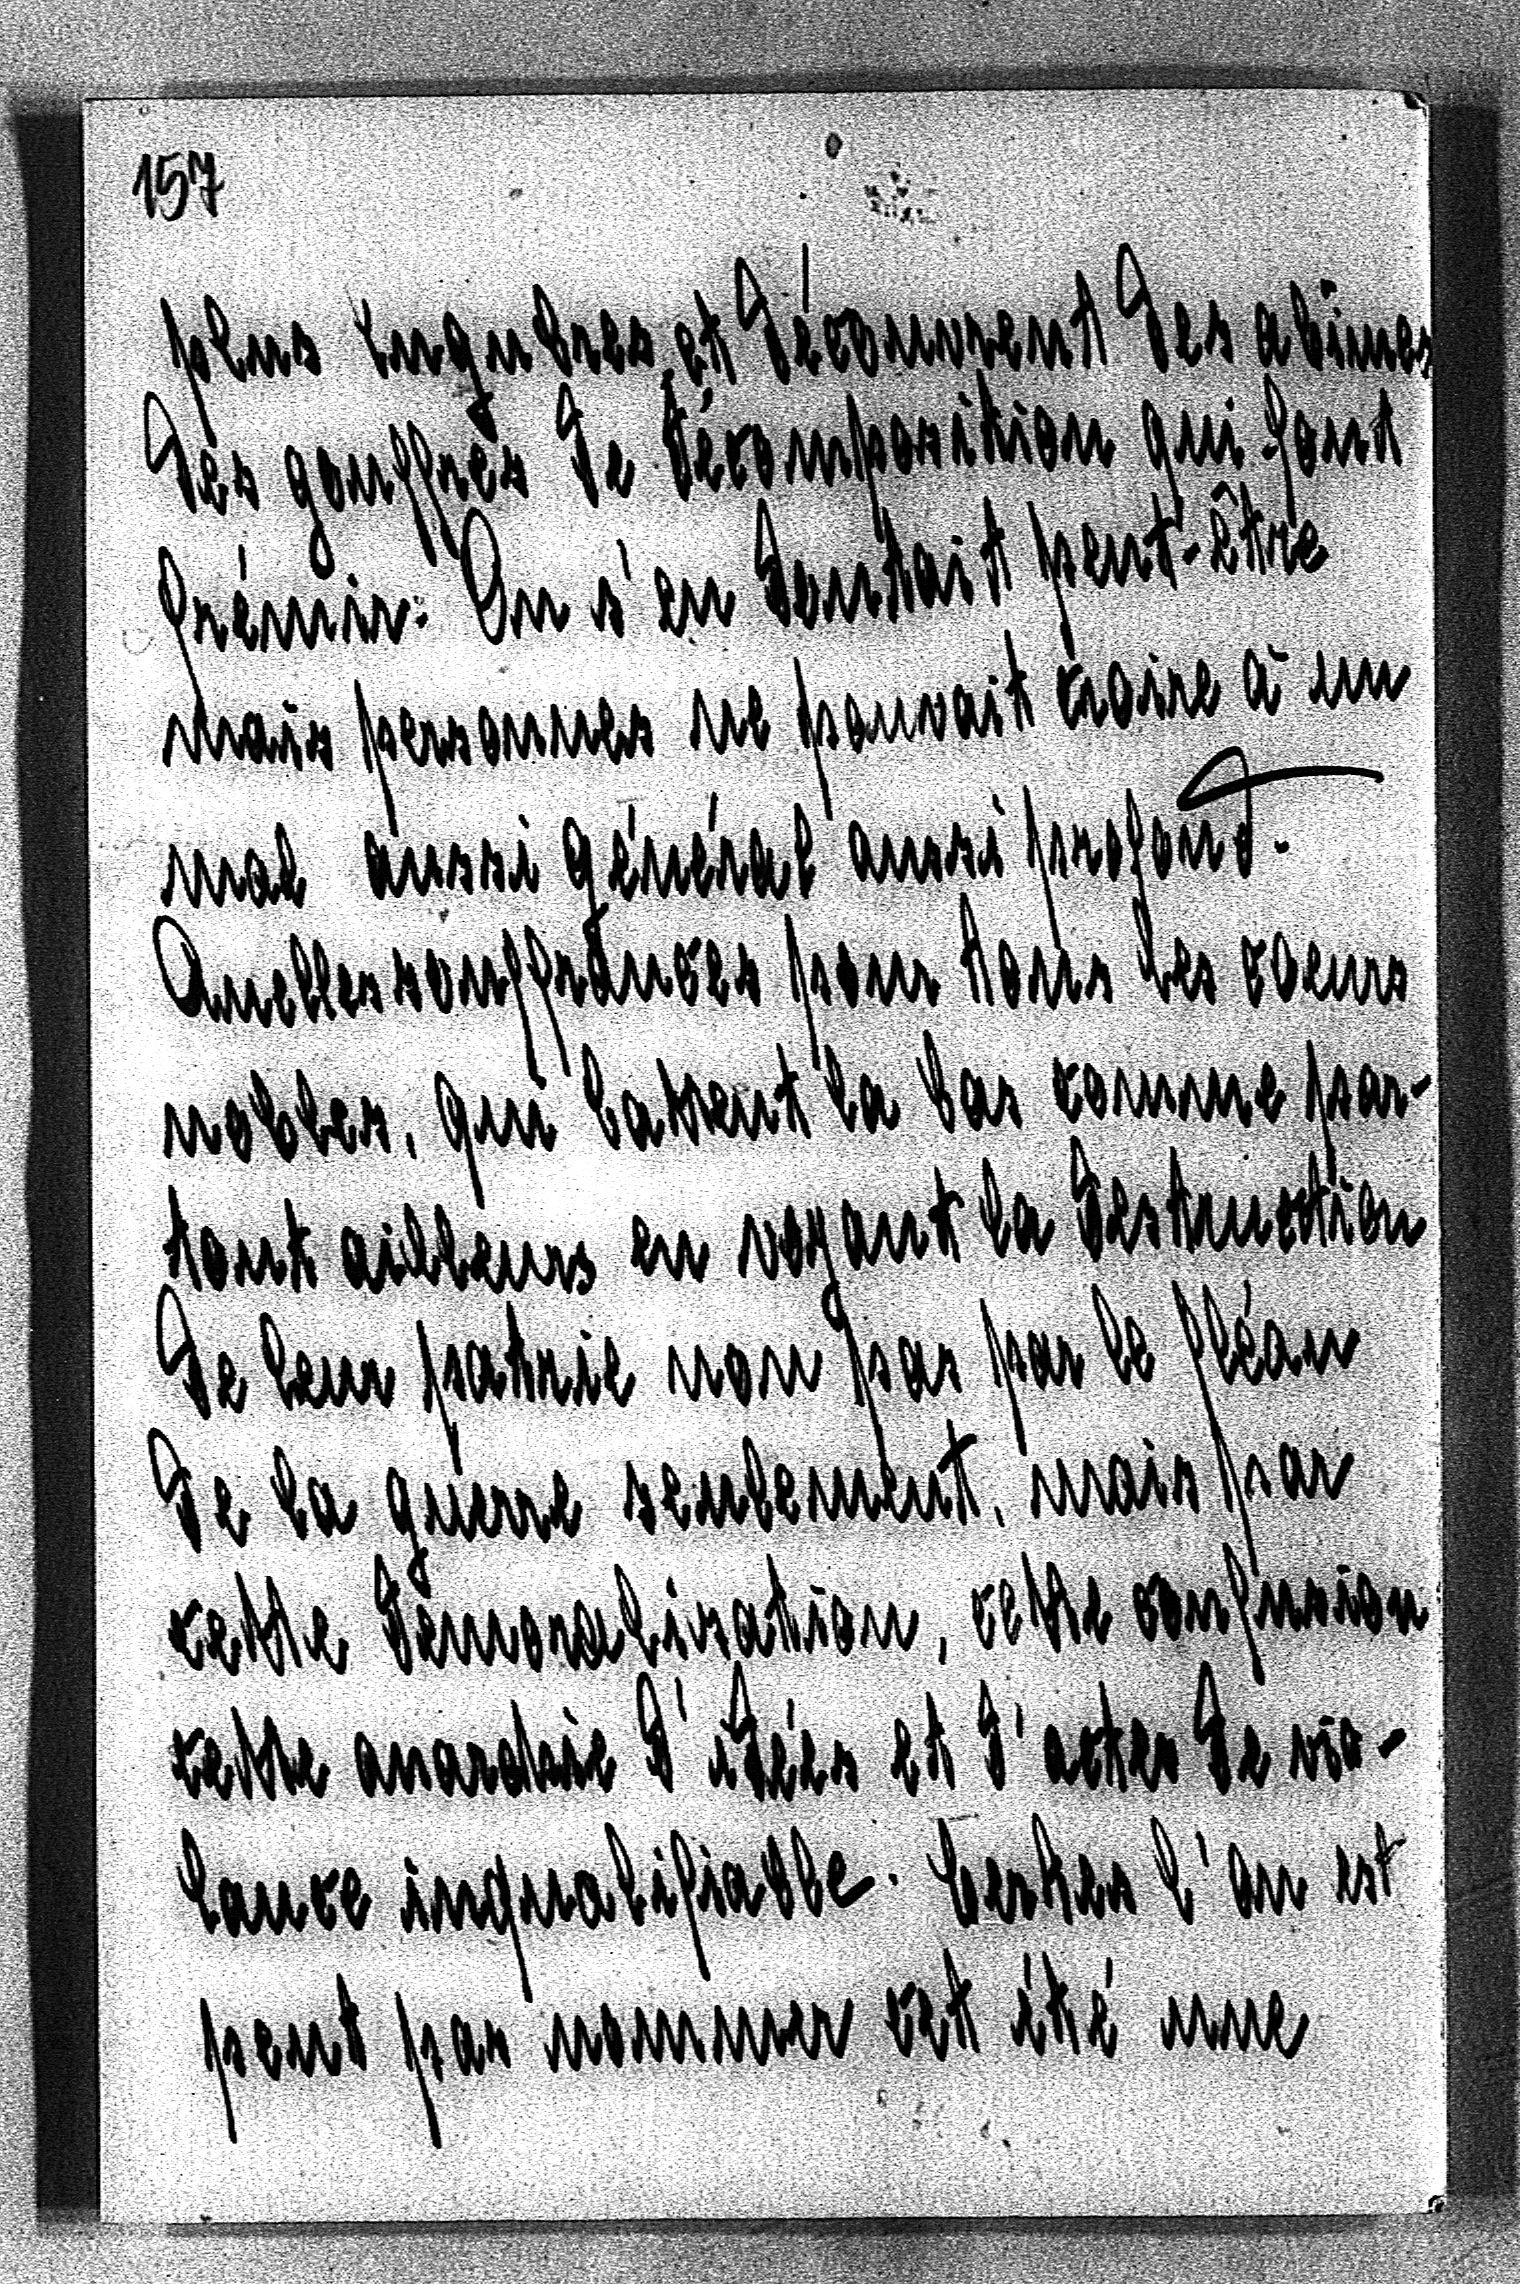 157
plus lugubres, et découvrent des abimes
des gouffres de décomposition qui font
frémir. On s'en doutait peut-être
mais personnes ne pouvait croire à un
mal aussi général aussi profond.
Quelles souffrances pour tous les coeurs
nobles, qui battent la bas comme par-
tout ailleurs en voyant la destruction
de leur patrie non pas par le fléau
de la guerre seulement, mais par
cette démoralisation, cette confusion
cette anarchie d'idées et d'actes de vio-
lence inqualifiable. Certes l'on est
peut pas nommer cet été une